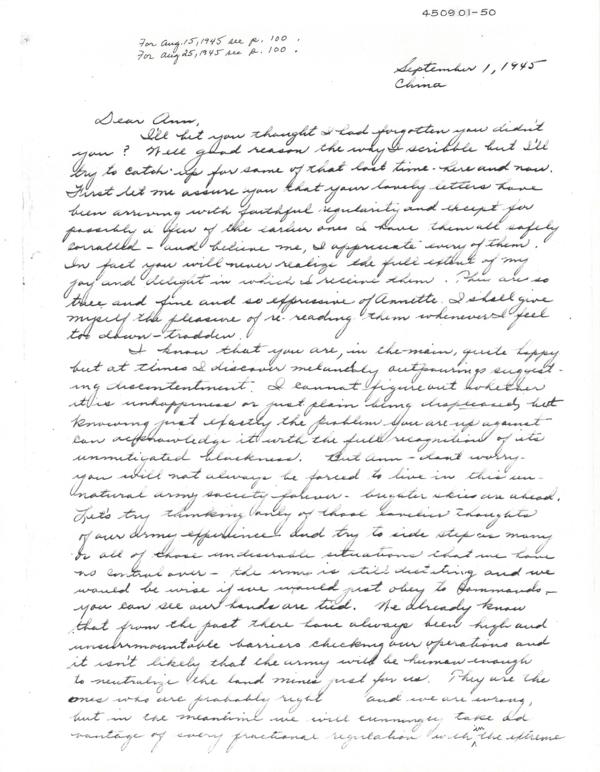 450901-50
For Aug. 15, 1945 see p. 100.
For Aug 25, 1945 see p. 100.
September 1, 1945
China
Dear Ann,
I'll bet you thought I had forgotten you didn't
you? Well good reason the way I scribble but I'll
try to catch up for some of that lost time - here and now.
First let me assure you that your lovely letters have
been arriving with faithful regularity and except for
possibly a few of the earlier ones I have them all safely
corralled - and believe me, I appreciate every of them.
In fact you will never realize the full extent of my
joy and delight in which I receive them. They are so
and fine and so expressive of Annette. I shall give
myself the pleasure of re-reading them whenever I feel
too down-trodden.
I know that you are, in the main, quite happy
but at times I discover melancholy outpourings suggest-
ing discontentment. I cannot figure out whether
it is unhappiness or just plain being displeased, but
knowing just exactly the problem you are up against
can acknowledge it with the full recognition of its
unmitigated blackness. But Ann - don't worry -
you will not always be forced to live in this un-
natural army society forever - brighter skies are ahead.
Let's try thinking only of those thoughts
of our army experience and try to side step as many
or all of those undesirable situations that we have
no control over - the army is still and we
would be wise if we would just obey to commands -
you can see our hands are tied. We already know
that from the past there have always been high and
unsurmountable barriers checking our operations and
it isn't likely that the army will be human enough
to neutralize the land mines just for us. They are the
ones who are probably right and we are wrong,
but in the meantime we will cunningly take ad
vantage of every fractional regulation with the extreme